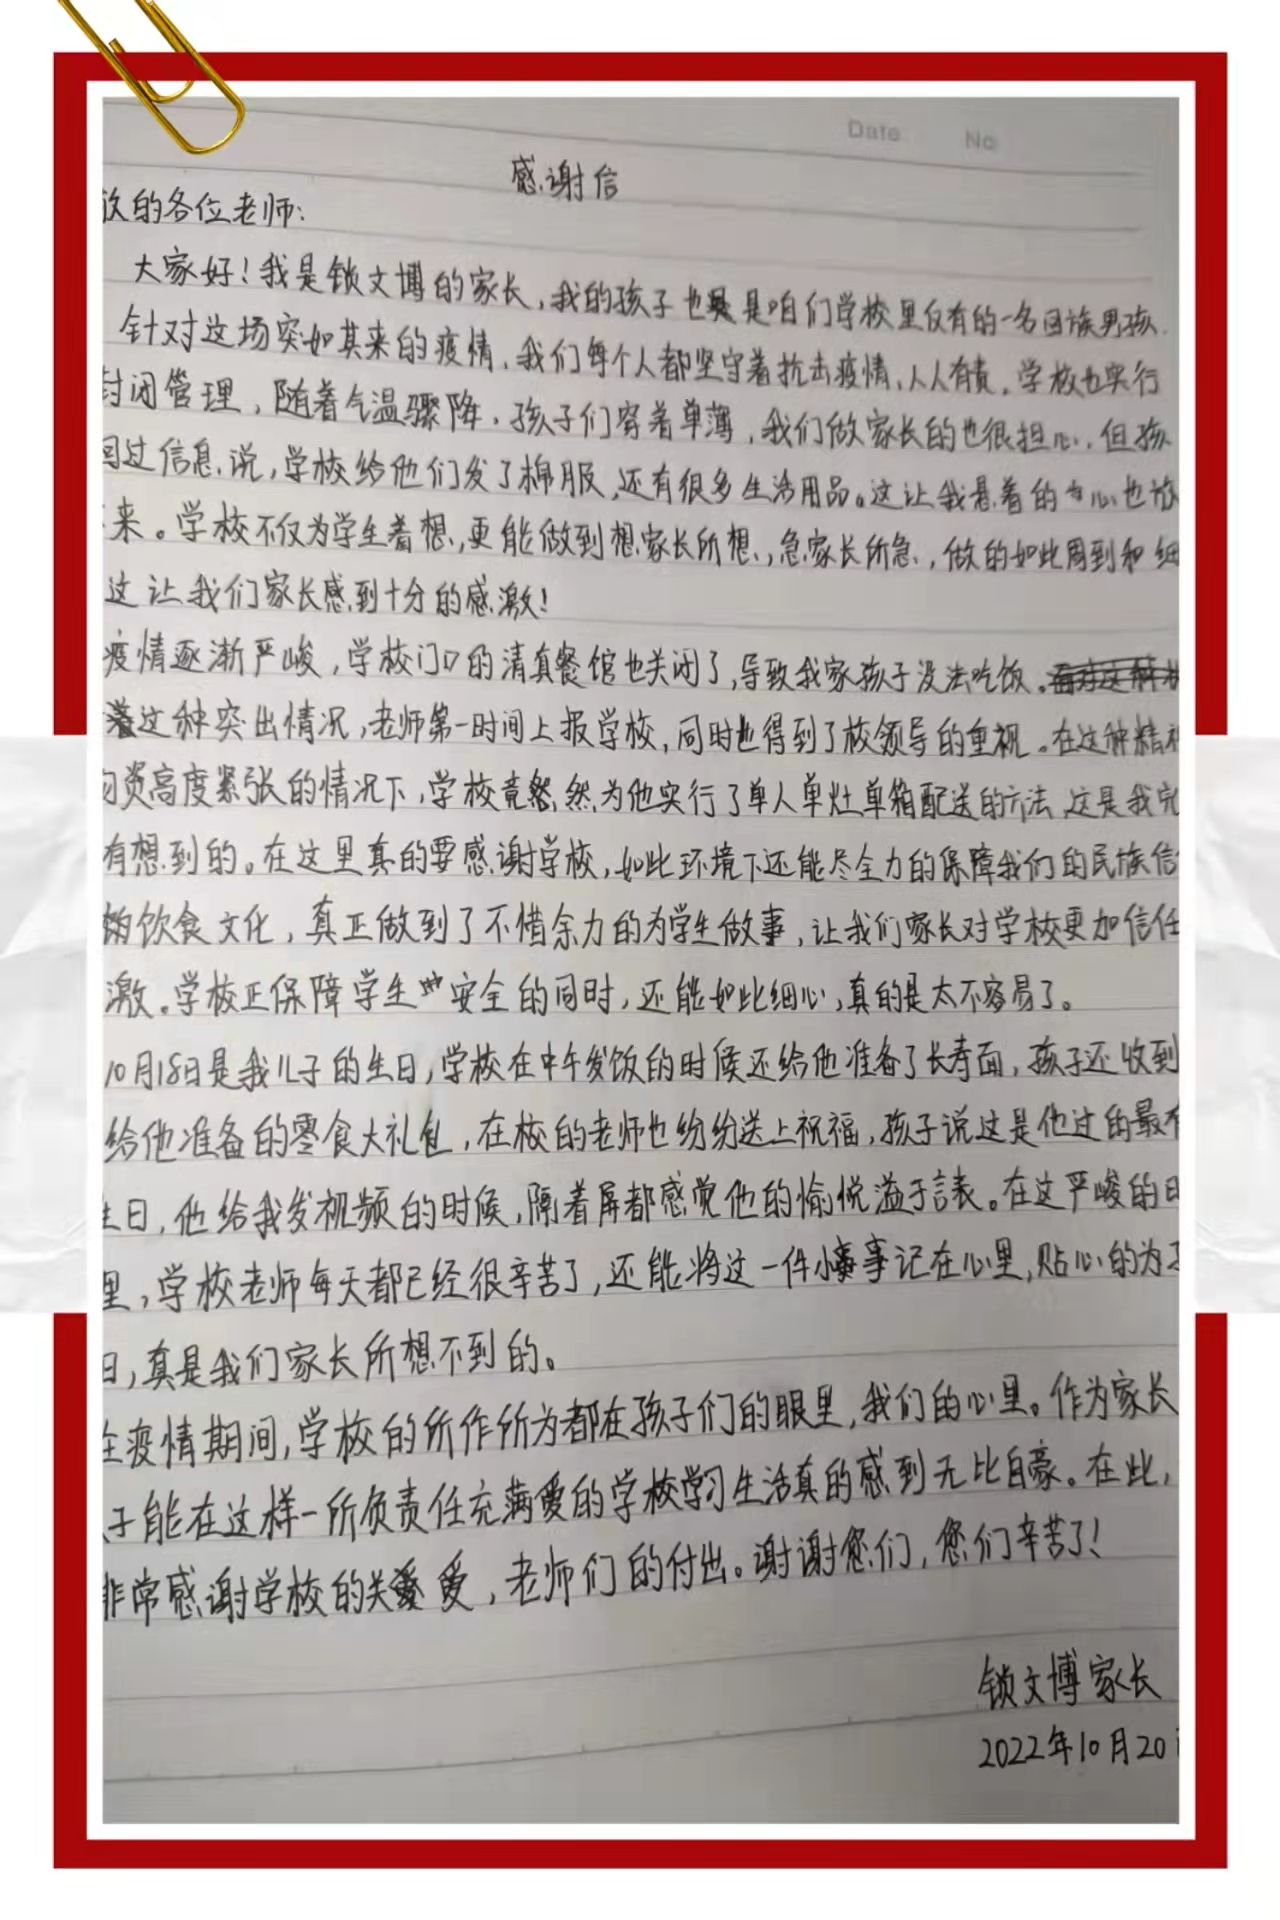 Date No
感谢信
的各位老师:
大家好!我是锁文博的家长,我的孩子也是咱们学校里仅有的一名回族男孩.
针对这场突如其来的疫情,我们每个人都坚守着抗击疫情,人人有责.学校也实行
封闭管理,随着气温骤降,孩子们穿着单薄,我们做家长的也很担心,但孩
回过信息说,学校给他们发了棉服,还有很多生活用品。这让我悬着的心也放
来。学校不仅为学生着想,更能做到想家长所想,急家长所急,做的如此周到和细
这让我们家长感到十分的感激!
疫情逐渐严峻,学校门口的清真餐馆也关闭了,导致我家孩子没法吃饭.
着这种突出情况,老师第一时间上报学校,同时也得到了校领导的重视。在这种精神
资高度紧张的情况下,学校竟然为他实行了单人单灶单箱配送的方法,这是我完
有想到的。在这里真的要感谢学校,如此环境下还能尽全力的保障我们的民族信
的饮食文化,真正做到了不惜余力的为学生做事,让我们家长对学校更加信任
激。学校正保障学生安全的同时,还能如此细心,真的是太不容易了。
10月18日是我儿子的生日,学校在中午发饭的时候还给他准备了长寿面,孩子还收到
给他准备的零食大礼包,在校的老师也纷纷送上祝福,孩子说这是他过的最有
生日,他给我发视频的时候,隔着屏都感觉他的愉悦溢于言表。在这严峻的日
里,学校老师每天都已经很辛苦了,还能将这一件小事记在心里,贴心的为
日,真是我们家长所想不到的。
在疫情期间,学校的所作所为都在孩子们的眼里,我们的心里。作为家长
子能在这样一所负责任充满爱的学校学习生活真的感到无比自豪。在此,
非常感谢学校的关爱,老师们的付出。谢谢您们,您们辛苦了!
锁文博家长
2022年10月20日